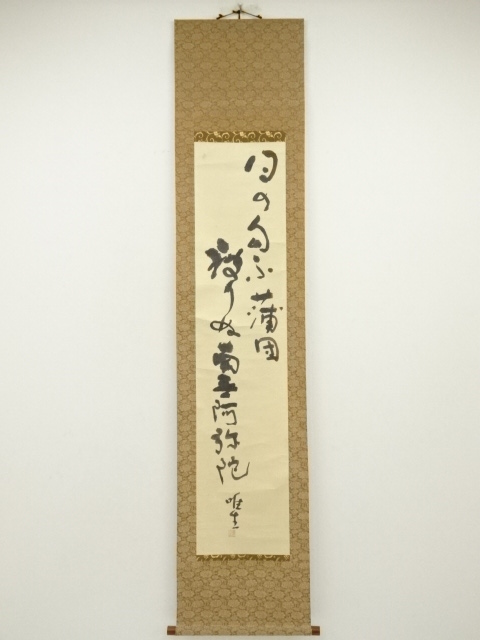 日の匂ふ蒲団
被りぬ南無阿弥陀
唯生